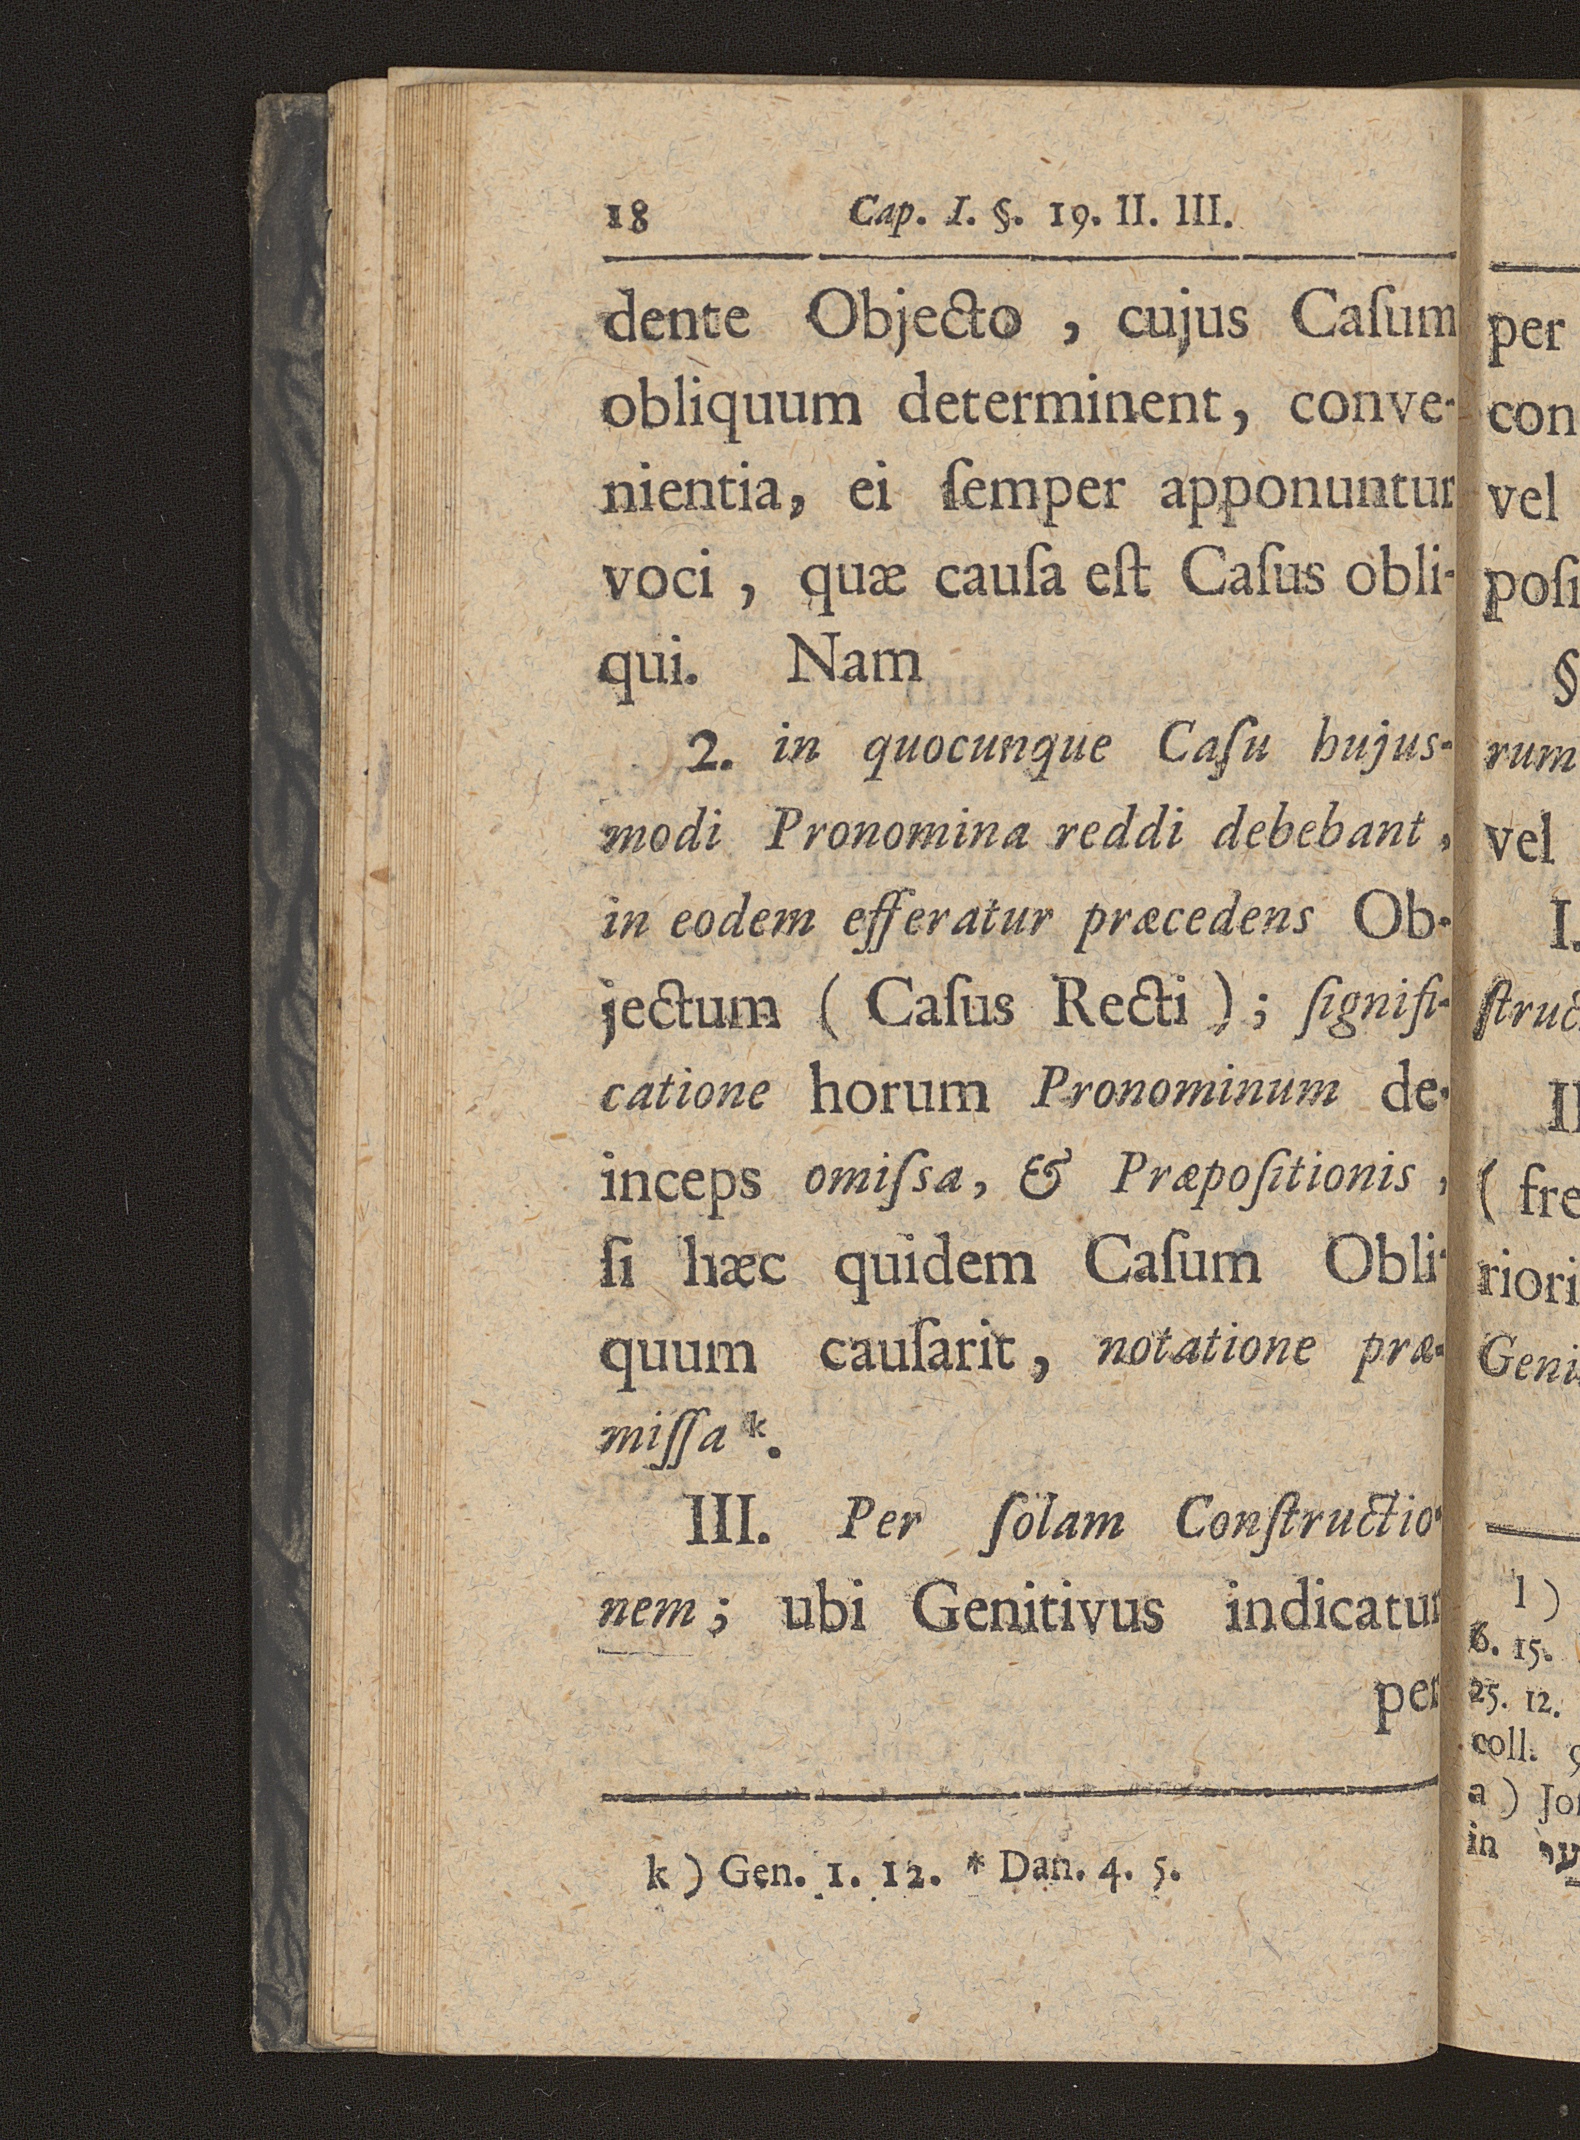 18 Cap. I. §. 19. II. III.
dente Objecto , cujus Caſum
obliquum determinent, conve-
nientia, ei ſemper apponuntur
voci , quæ cauſa eſt Caſus obli-
qui. Nam
2. in quocunque Caſu hujus-
modi Pronomina reddi debebant ,
in eodem efferatur præcedens Ob-
jectum ( Caſus Recti ) ; ſignifi-
catione horum Pronominum de-
inceps omiſsa, & Præpoſitionis ,
ſi hæc quidem Caſum Obli-
quum cauſarit, notatione præ-
miſſa k.
III. Per ſolam Conſtructio-
nem ; ubi Genitivus indicatur
per
k ) Gen. 1. 12. * Dan. 4. 5.
per
con
vel
poſi
§
rum
vel
I.
ſtruc
II
( fre
riori
Geni
l )
6. 15.
25. 12.
coll.
a ) Joſ
in